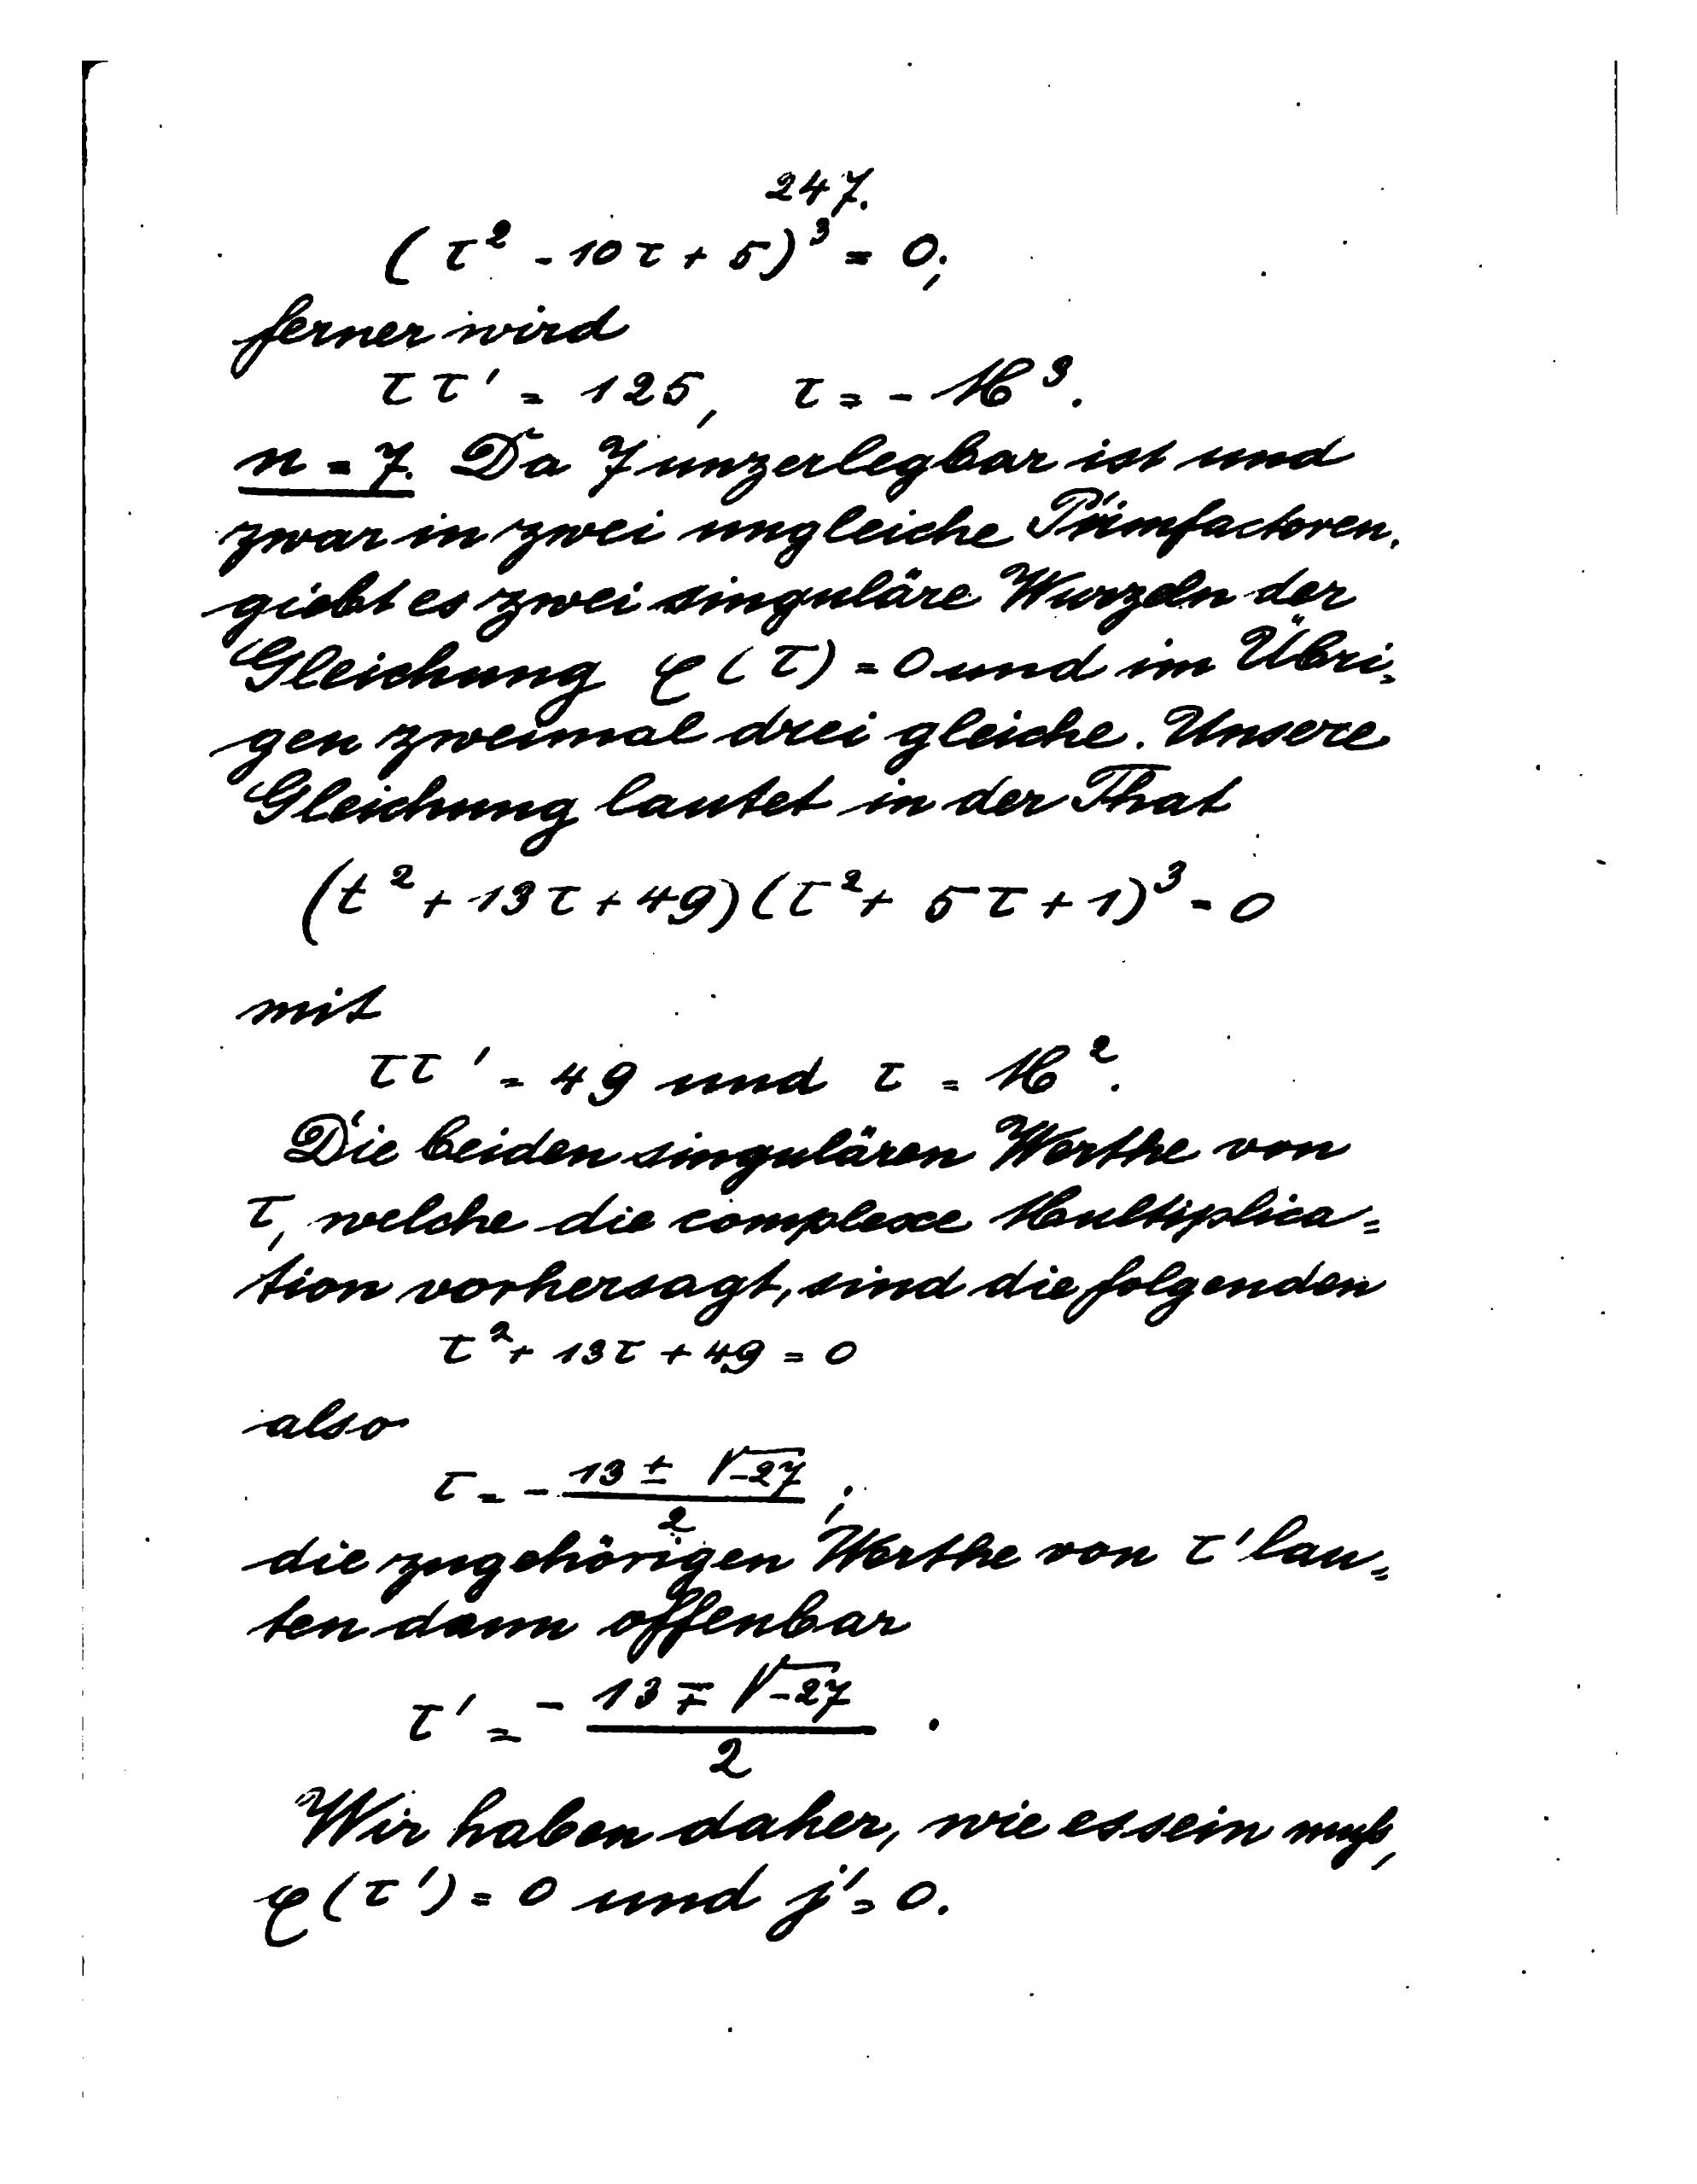 247.
(τ² - 10τ + 5)³ = 0;
ferner wird
ττ' = 125, τ = - M³.
n = 7. Da 7 unzerlegbar ist und
zwar in zwei ungleiche Primfactoren,
giebt es zwei singuläre Wurzeln der
Gleichung φ(τ) = 0 und im Übri=
gen zweimal drei gleiche. Unsere
Gleichung lautet in der That
(t² + 13τ + 49)(τ² + 5τ + 1)³ = 0
mit
ττ' = 49 und τ = M².
Die beiden singulären Werthe von
τ, welche die complexe Multiplica=
tion vorhersagt, sind die folgenden
τ² + 13τ + 49 = 0
also
τ = - (13 ± √-27)/2;
die zugehörigen Werthe von τ' lau=
ten dann offenbar
τ' = - (13 ∓ √-27)/2.
Wir haben daher, wie es sein muß,
φ(τ') = 0 und j' = 0.